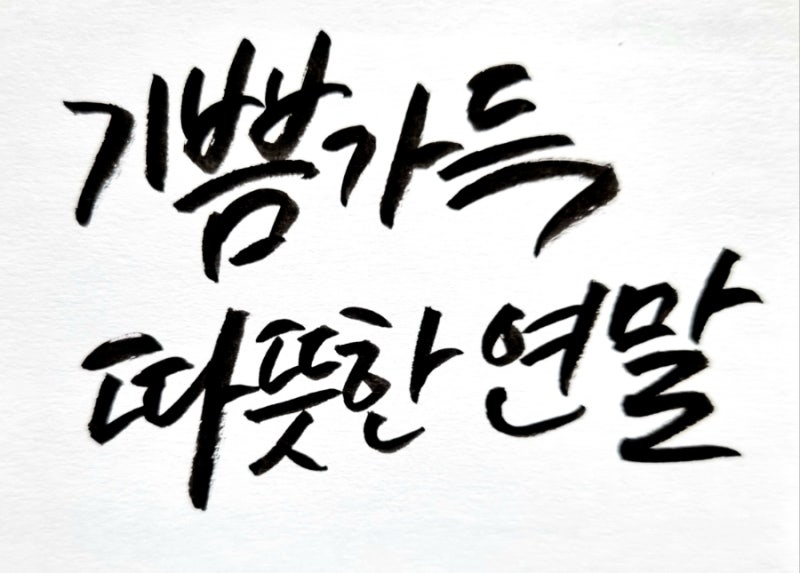 기쁨가득
따뜻한 연말